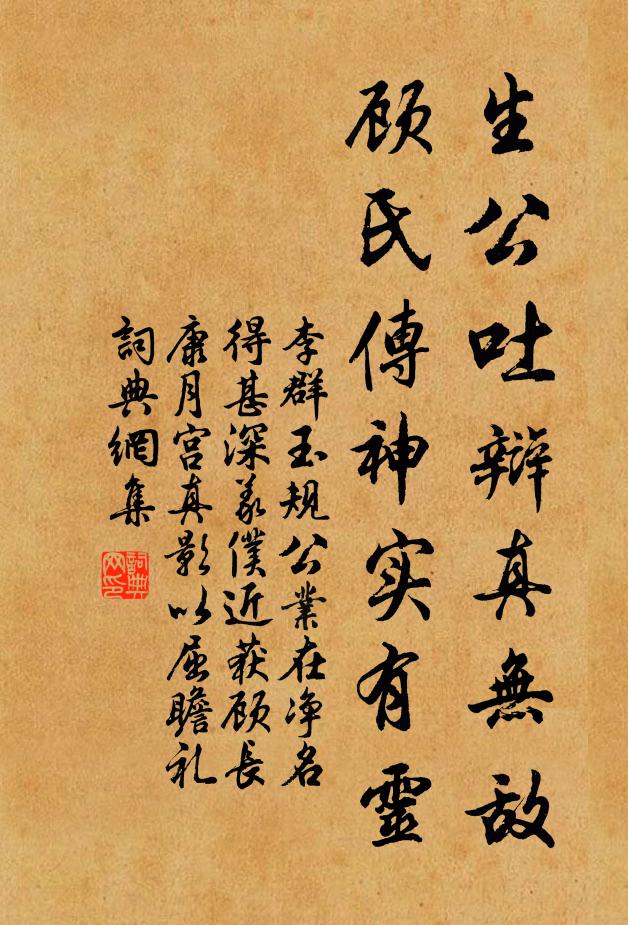 生公吐辯真無敌
顾氏傳神实有靈
李群玉规公業在净名
得甚深義僕近获顾長
康月宫真影以屈瞻礼
詞典網集
詞典
网印